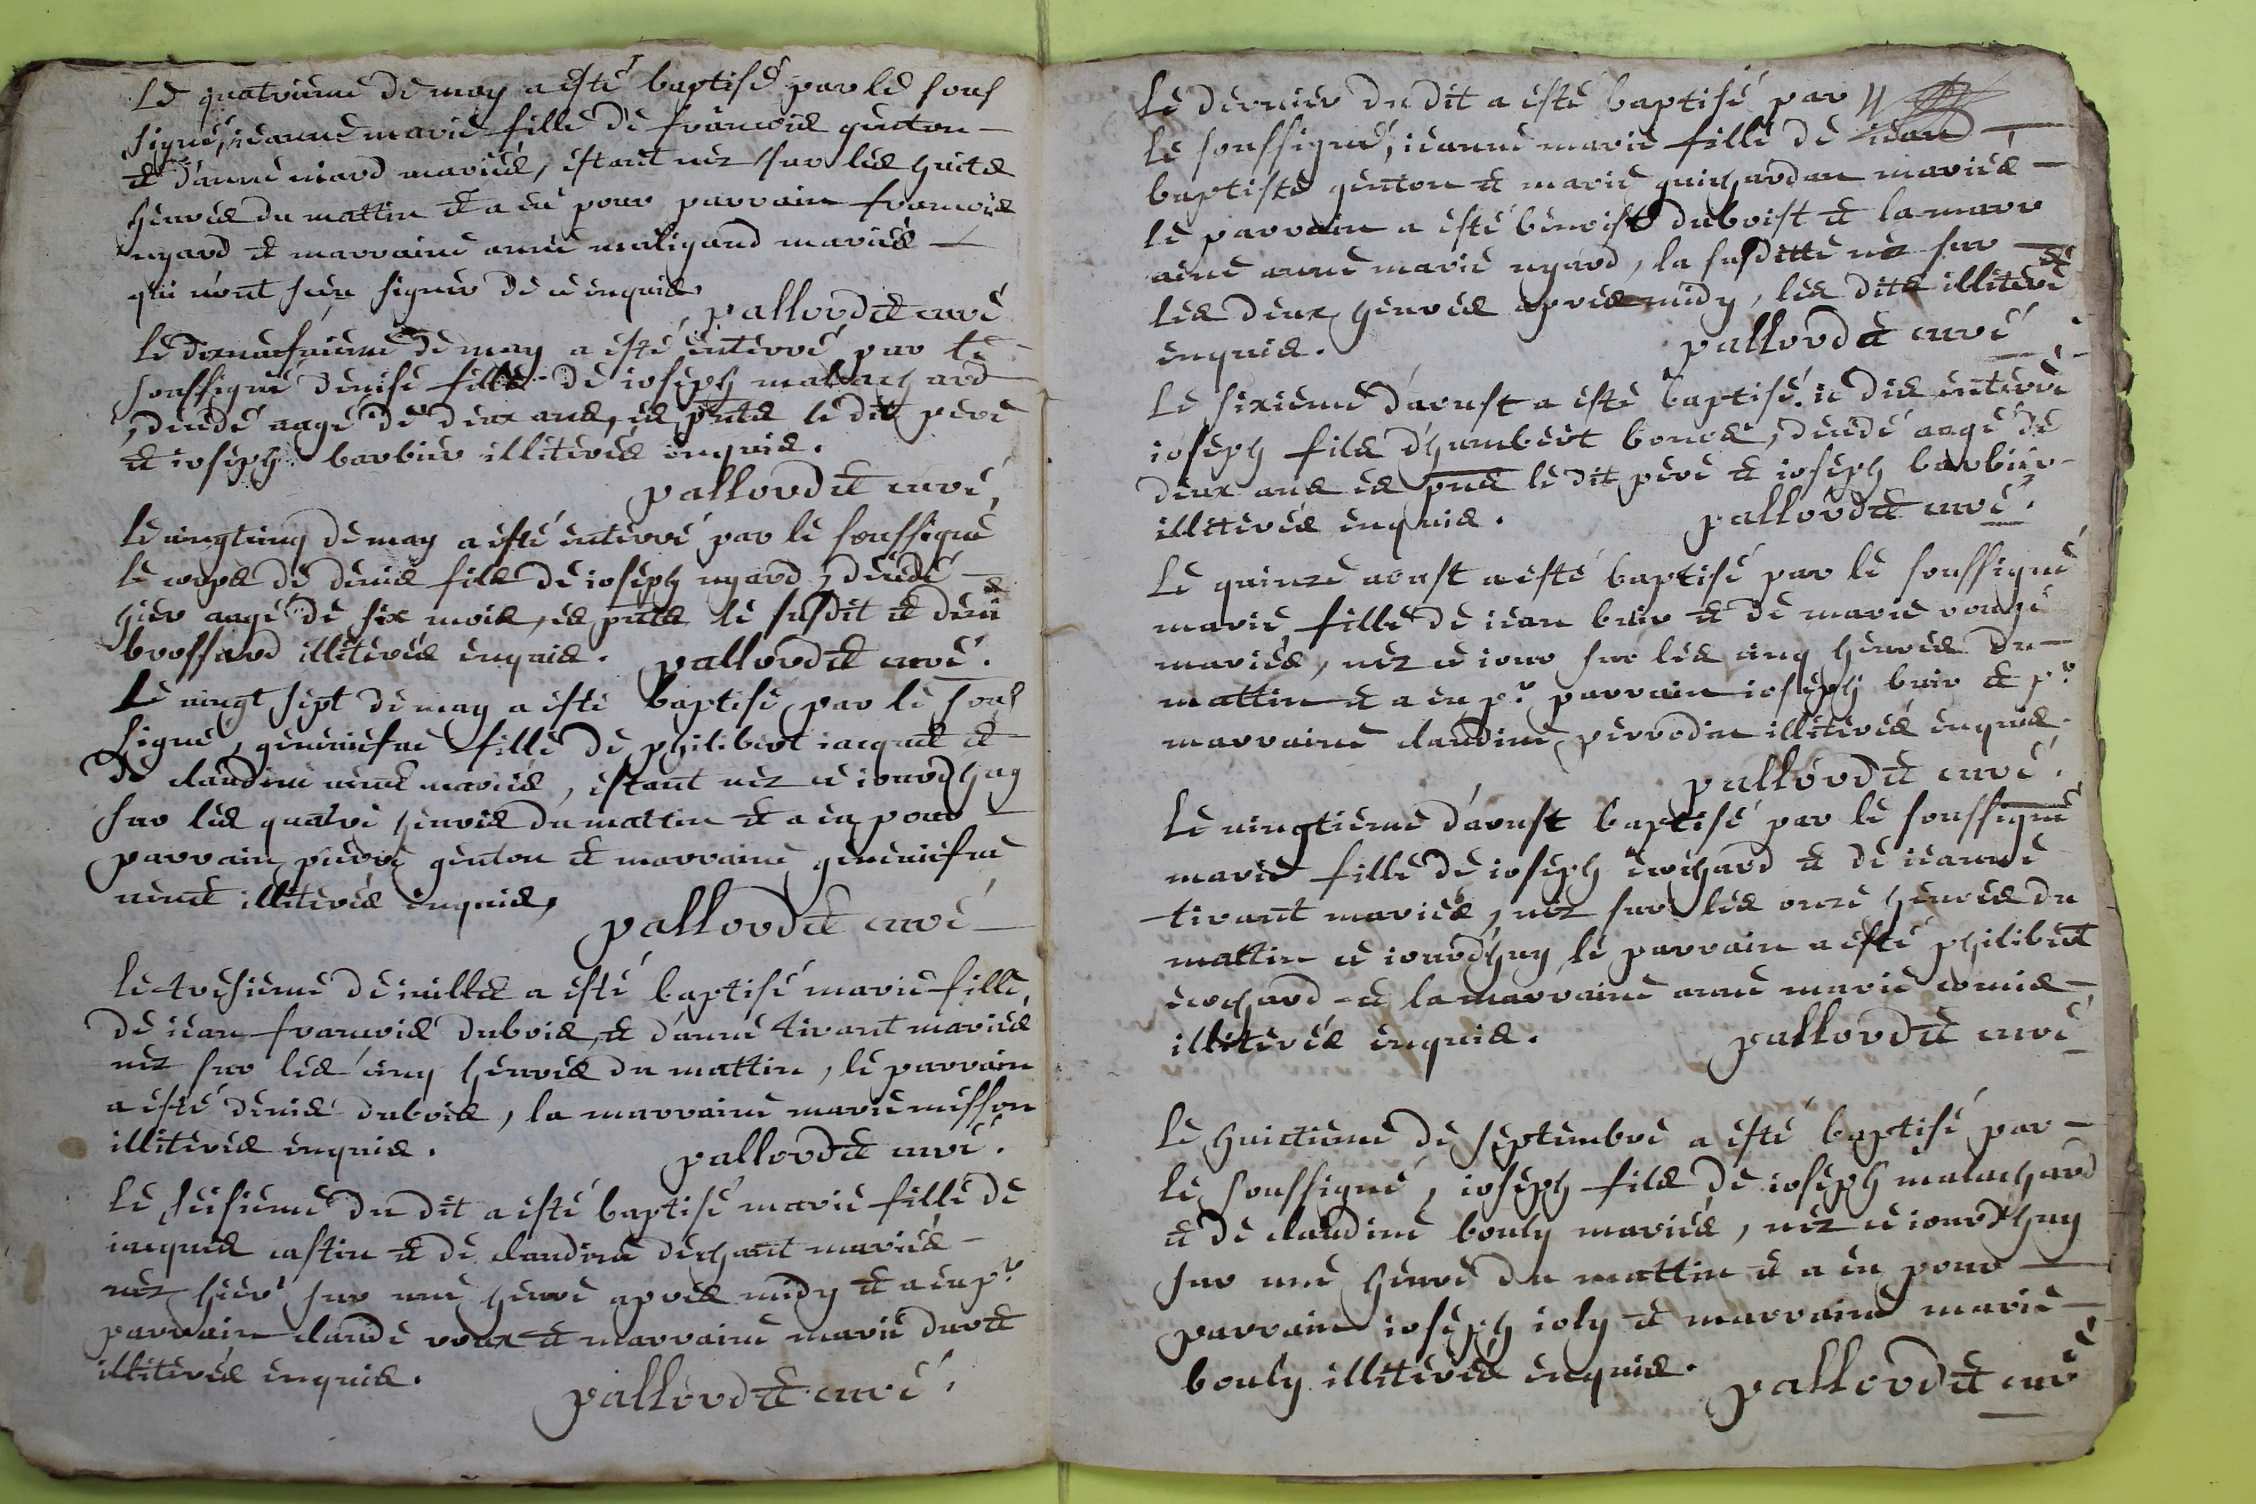 Le quatrieme de may a esté baptisé par le sous
signé, ieanne marie fille de francois genton
et d'anne niard mariés, estant nez sur les huits
heures du mattin et a eu pour parrain francois
nyard et marraine anne maligand mariés
qui n'ont sceu signer de ce enquis.
pallordet curé
Le de may a esté enterré par le
soussigné denise fille de ioseph malachard
decedé aagé de deux ans, es pnts le dit pere
et ioseph barbier illiterés enquis.
pallordet curé,
Le vingtcinq de may a esté enterré par le soussigné
le corps de denis fils de ioseph nyard, decedé
hier aagé de six mois, es pnts le susdit et denis
brossard illiterés enquis. pallordet curé.
Le vingt sept de may a esté baptisé par le sous
signé, geneviefue fille de philibert iacquet et
de claudine mariés, estant nez ce iourdhuy
sur les quatre heures du mattin et a eu pour
parrain pierre genton et marraine geneviefue
illiterés enquis,
pallordet curé
Le tresieme de iuillet a esté baptisé marie fille
de iean francois dubois, et d'anne tirant mariés
nez sur les cinq heures du mattin, le parrain
a esté denis dubois, la marraine marie misson
illiterés enquis. pallordet curé.
Le seisieme du dit a esté baptisé marie fille de
iacques castin et de claudine dechant mariés
nez hier sur une heure apres midy et a eu pr
parrain claude roux et marraine marie duret
illiterés enquis.
pallordet curé.
Le dernier du dit a esté baptisé par
le soussigné, ieanne marie fille de iean
baptiste genton et marie guichardan mariés
le parrain a esté benoist duboist et la marr
aine anne marie nyard, la susditte nez sur
les deux heures apres midy, les dits illiterés
enquis. pallordet curé
Le sixieme d'aoust a esté baptisé ie dis enterré
ioseph fils d'humbert bonos, decedé aagé de
deux ans es pnts le dit pere et ioseph barbier
illiterés enquis. pallordet curé.
Le quinze aoust a esté baptisé par le soussigné
marie fille de iean buir et de marie rouge
mariés, nez ce iour sur les cinq heures du
mattin et a eu pr parrain ioseph buir et pr
marraine claudine perrodin illiterés enquis.
pallordet curé.
Le vingtieme d'aoust baptisé par le soussigné
marie fille de ioseph ecochard et de ieanne
tirant mariés, nez sur les onze heures du
mattin ce iourdhuy le parrain a esté philibert
ecochard et la marraine anne marie comis
illiterés enquis. pallordet curé
Le huictieme de septembre a esté baptisé par
le soussigné, ioseph fils de ioseph malachard
et de claudine bouly mariés, nez ce iourdhuy
sur une heure du mattin et a eu pour
parrain ioseph ioly et marraine marie
bouly illiterés enquis. pallordet curé